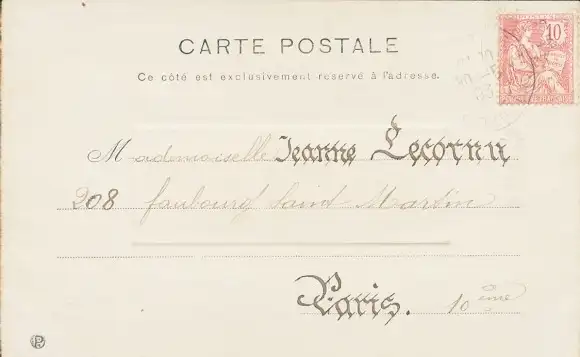 CARTE POSTALE
Ce côté est exclusivement réservé à l'adresse.
10
Mademoiselle Jeanne Lecornu
208 faubourg Saint Martin
Paris. 10ème